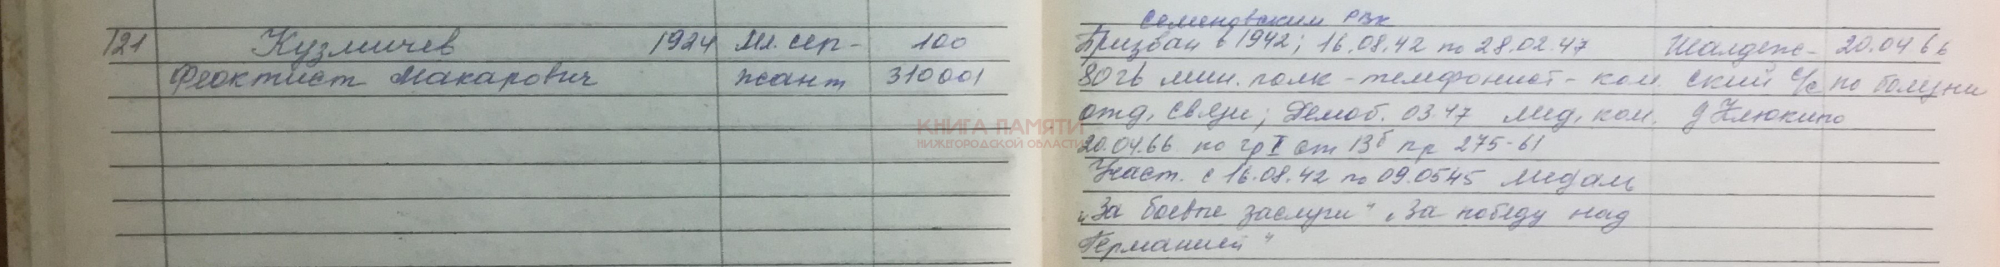 Семеновским РВК
121 Кузмичев 1924 Мл. сер- 100 Призван в 1942; 16.08.42 по 28.02.47 Шалдеж- 20.04 66
Феоктист Макарович жант 310001 80 гв мин. полк - телефонист - ком. ский с/с по болезни
отд. связи; Демоб. 03.47 Мед. ком. д Клюкино
КНИГА ПАМЯТИ
НИЖЕГОРОДСКОЙ ОБЛАСТИ
20.04.66 по гр I ст 13б пр 275-61
Участ. с 16.08.42 по 09.0545 Медаль
„За боевые заслуги" „За победу над
Германией"